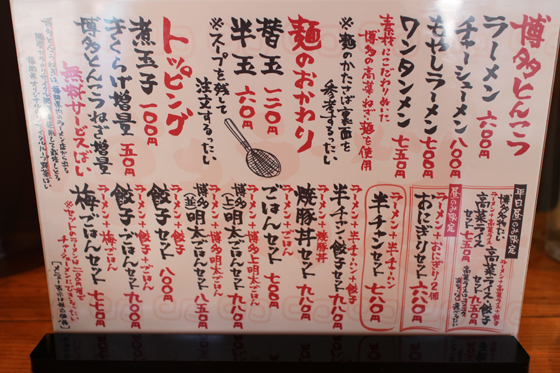 博多とんこつ
ラーメン 六〇〇円
チャーシューメン 八〇〇円
もやしラーメン 七〇〇円
ワンタンメン 七五〇円
素材にこだわりぬいた
博多の高菜・ねぎ・麺を使用
※麺のかたさは裏面を
参考するったい
麺のおかわり
替玉 一二〇円
半玉 六〇円
※スープを残して
注文するったい
トッピング
煮玉子 一〇〇円
きくらげ増量 五〇円
博多とんこつねぎ増量
無料サービスばい
平日昼のみ限定
ラーメン+高菜ライス+餃子
高菜ライス・餃子
セット 九五〇円
高菜ライス
セット 七五〇円
昼のみ限定
ラーメン+おにぎり2個
おにぎりセット 六八〇円
ラーメン+半チャン
半チャンセット 七八〇円
ラーメン+半チャン+餃子
半チャン餃子セット 九八〇円
ラーメン+焼豚丼
焼豚丼セット 九八〇円
ラーメン+ごはん
ごはんセット 七〇〇円
ラーメン+博多上明太ごはん
博多(上)明太ごはんセット 九八〇円
ラーメン+博多明太ごはん
博多(並)明太ごはんセット 八五〇円
ラーメン+餃子
餃子セット 八〇〇円
ラーメン+餃子+ごはん
餃子ごはんセット 九〇〇円
ラーメン+梅ごはん
梅ごはんセット 七七〇円